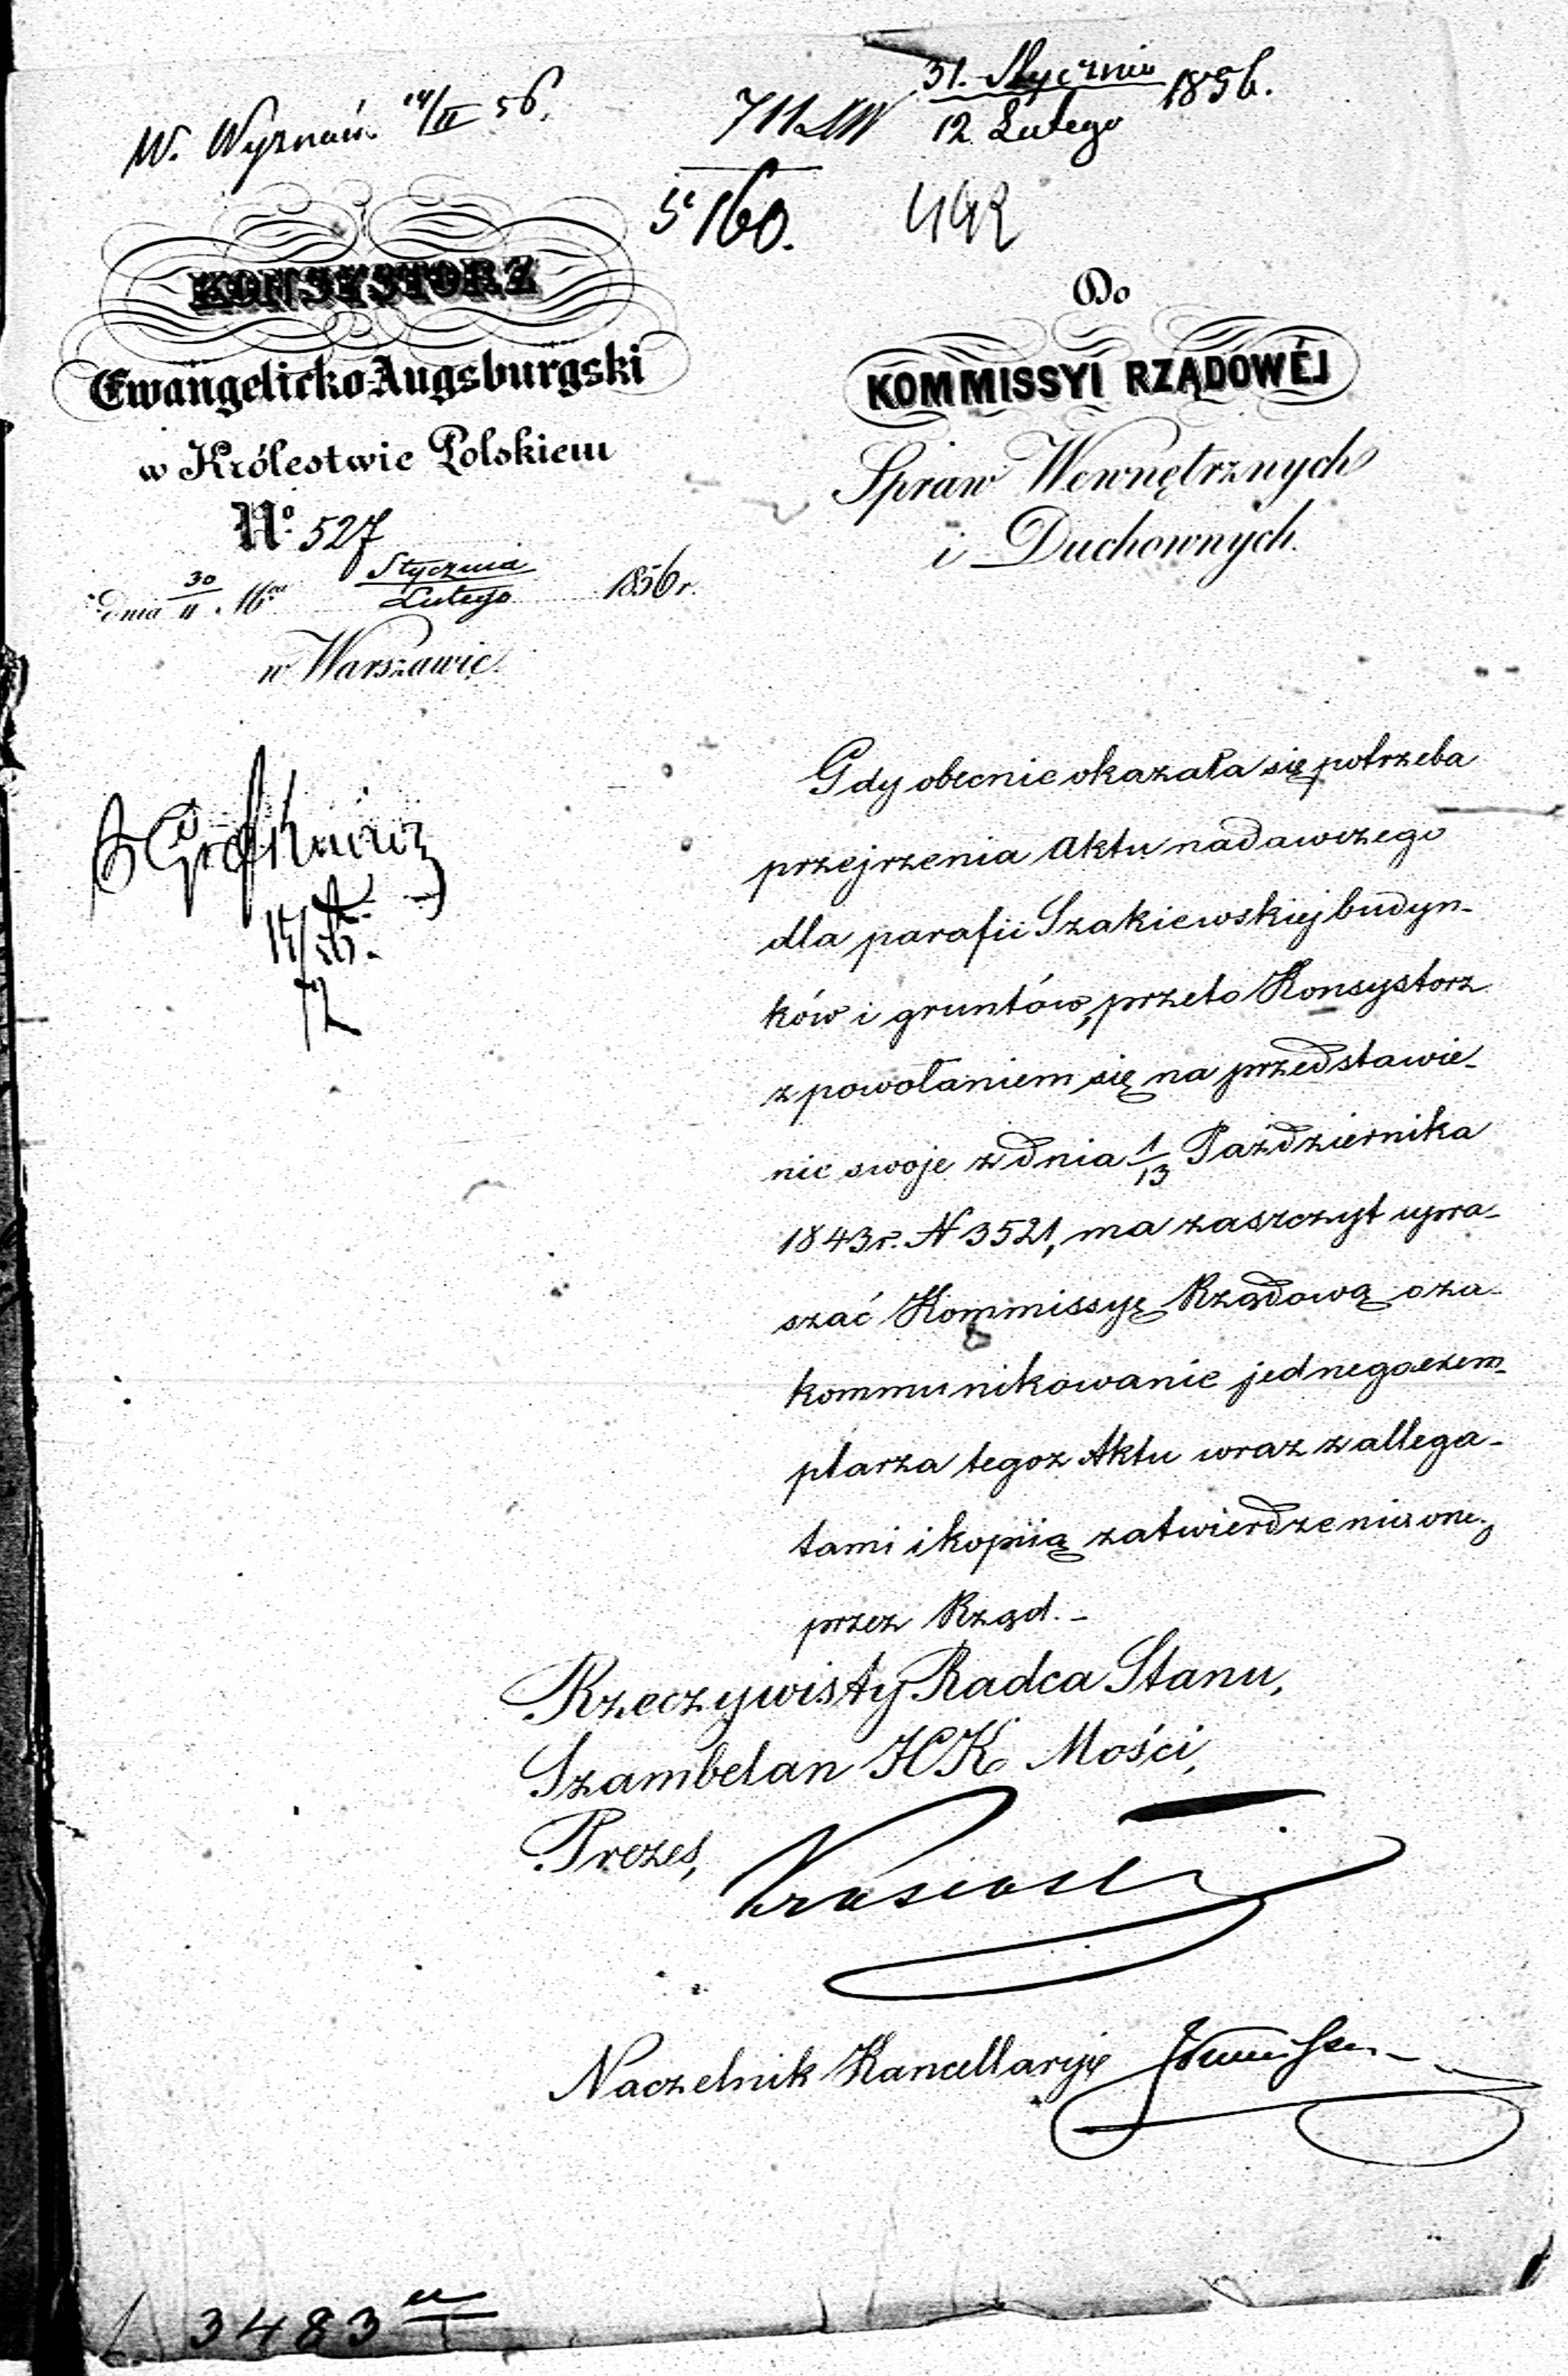 W. Wyznań. 14/II 56.
711 31. Stycznia 1856.
12 Lutego
160. 442
KONSYSTORZ
Ewangelicko-Augsburgski
w Królestwie Polskiem
No. 527
dnia 30/11 Mca Stycznia/Lutego 1856 r.
w Warszawie.
Do
KOMMISSYI RZĄDOWÉJ
Spraw Wewnętrznych
i Duchownych.
Gdy obecnie okazała się potrzeba
przejrzenia Aktu nadawczego
dla parafii Szakiewskiej budyn-
ków i gruntów, przeto Konsystorz
z powołaniem się na przedstawie-
nie swoje z dnia 1/13 Października
1843 r. N 3521, ma zaszczyt upra-
szać Kommissyę Rządową o za-
kommunikowanie jednego exem-
plarza tegoz Aktu wraz z allega-
tami i kopiią zatwierdzenia onej
przez Rząd. -
Rzeczywisty Radca Stanu,
Szambelan JCK Mości,
Prezes,
Naczelnik Kancellaryi
3483